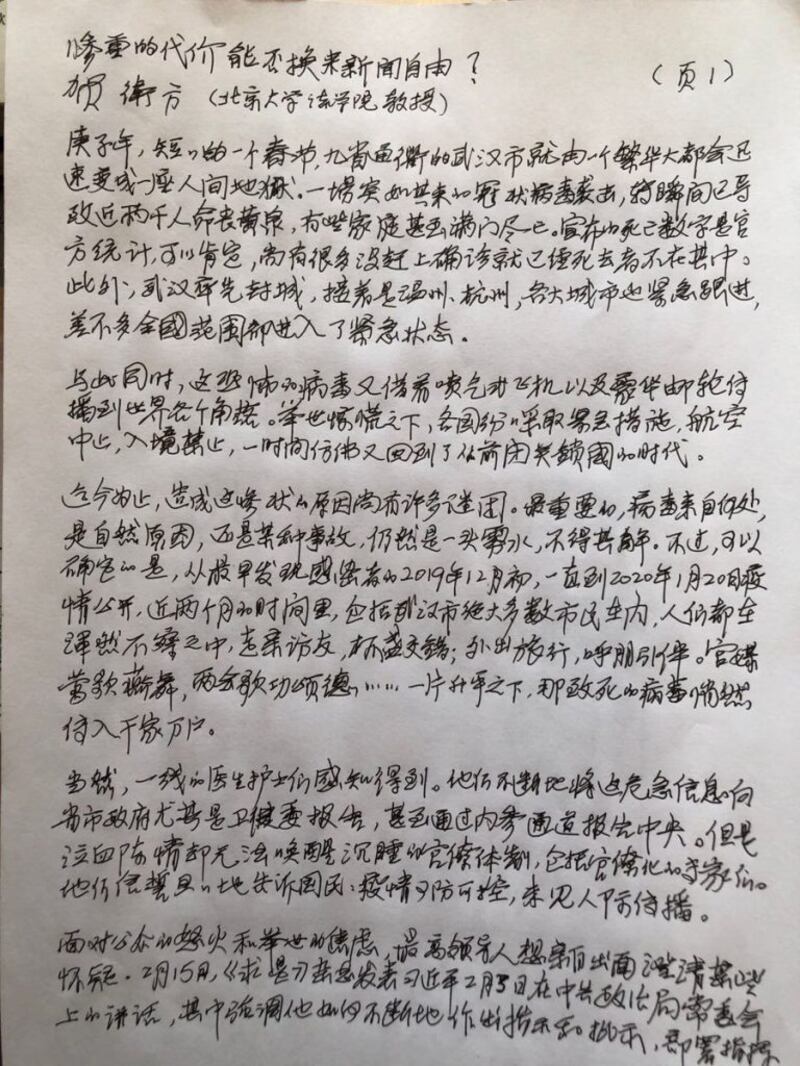 惨重的代价能否换来新闻自由？
（页1）
贺衛方（北京大学法学院教授）
庚子年，短短的一个春节，九省通衢的武汉市就由一个繁华大都会迅
速变成一座人间地狱。一场突如其来的冠状病毒袭击，转瞬间已导
致近两千人命丧黄泉，有些家庭甚至满门尽亡。宣布的死亡数字是官
方统计，可以肯定，尚有很多没赶上确诊就已经死去者不在其中。
此外，武汉率先封城，接着是温州、杭州，各大城市也紧急跟进，
差不多全國范围都进入了紧急状态。
与此同时，这恐怖的病毒又借着喷气式飞机以及豪华邮轮传
播到世界各个角落。举世惊慌之下，各国纷纷采取紧急措施，航空
中止，入境禁止，一时间仿佛又回到了从前闭关鎖國的时代。
迄今为止，造成这惨状的原因尚有许多谜团。最重要的，病毒来自何处，
是自然原因，还是某种事故，仍然是一头雾水，不得其解。不过，可以
确定的是，从最早发现感染者的2019年12月初，一直到2020年1月20日疫
情公开，近两个月的时间里，包括武汉市绝大多数市民在内，人们都在
浑然不察之中，走亲访友，杯盏交错；外出旅行，呼朋引伴。官媒
莺歌燕舞，两会歌功颂德……一片升平之下，那致死的病毒悄然
传入千家万户。
当然，一线的医生护士们感知得到。他们不断地将这危急信息向
省市政府尤其是卫健委报告，甚至通过内参通道报告中央。但是
泣血陈情却无法唤醒沉睡的官僚体制，包括官僚化的专家们。
他们信誓旦旦地告诉国民：疫情可防可控，未见人际传播。
面对公众的怒火和举世的焦虑，最高领导人想亲自出面澄清某些
怀疑。2月15日，《求是》杂志发表习近平2月3日在中共政治局常委会
上的讲话，其中强调他如何不断地作出指示和批示，部署指挥